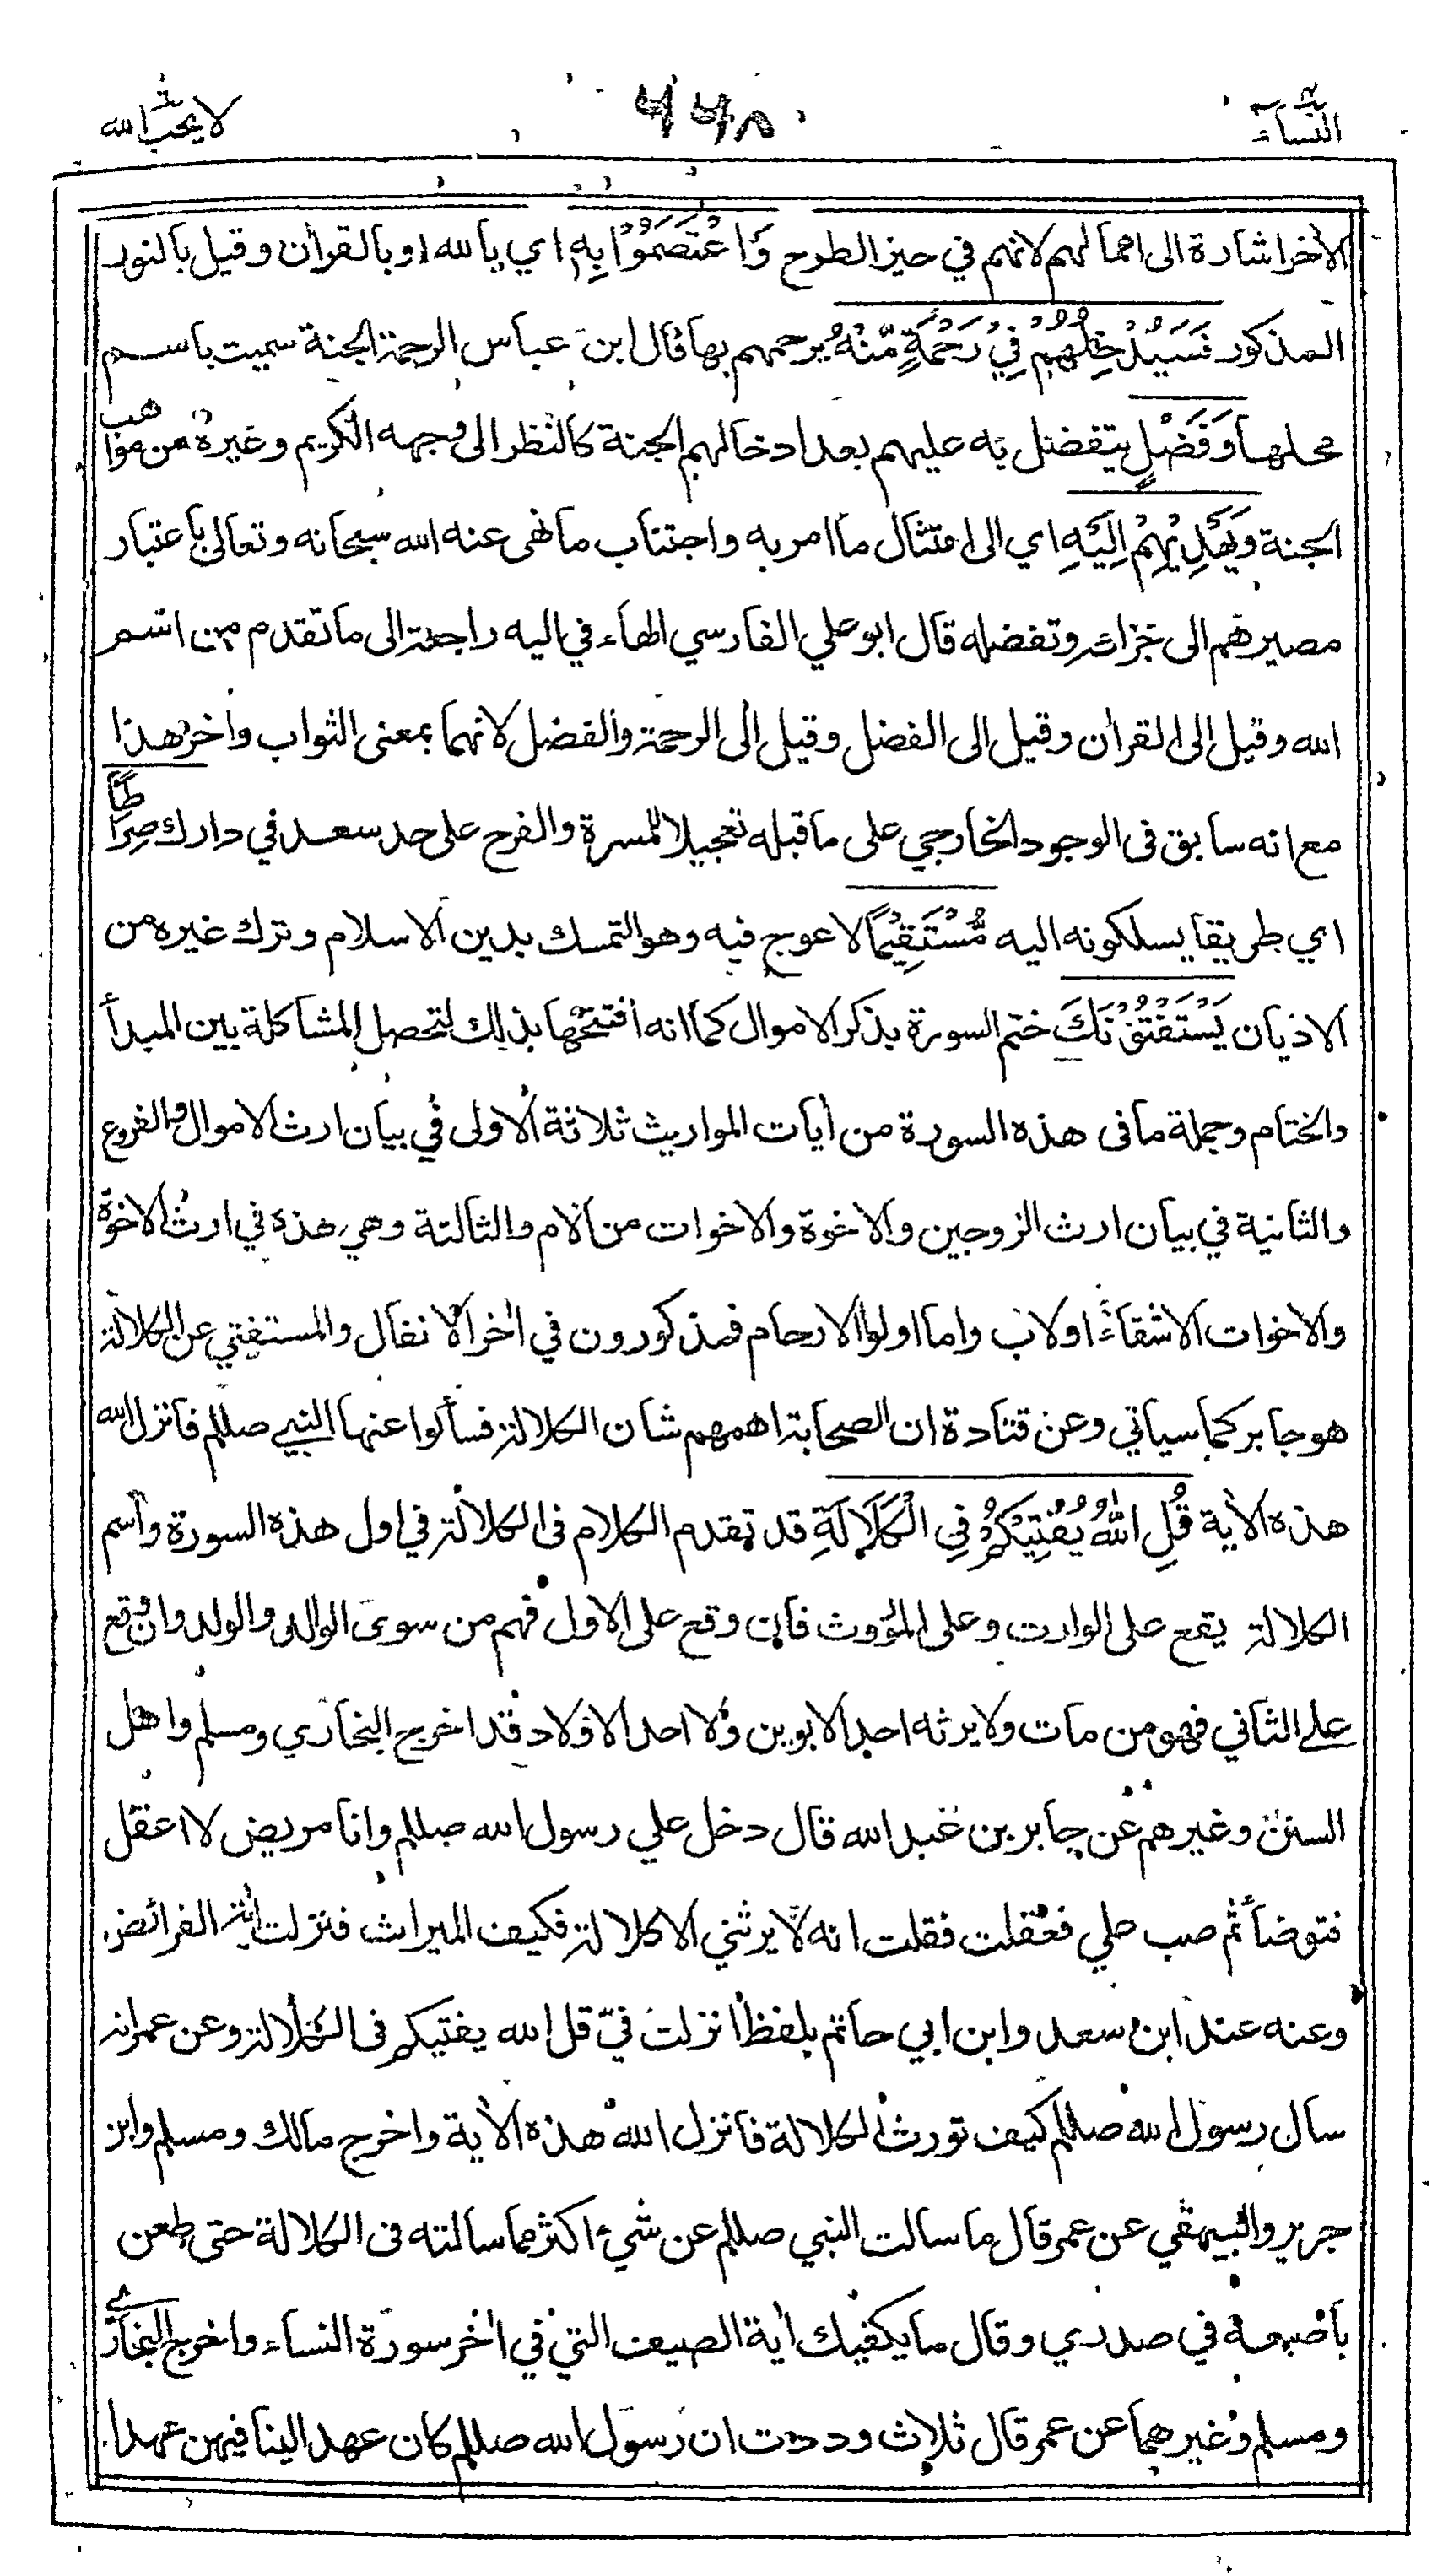 النساء ٤٤٨ لا يحب الله
الأخر اشارة الى اهمالهم لانهم في حيز الطرح وَاعْتَصَمُوْا بِهٖ اي بالله او بالقرأن وقيل بالنور
المذكور فَسَيُدْخِلُهُمْ فِيْ رَحْمَةٍ مِّنْهُ يرحمهم بها قال ابن عباس الرحمة الجنة سميت باسم
محلها وَفَضْلٍ يتفضل به عليهم بعد ادخالهم الجنة كالنظر الى وجهه الكريم وغيره من مواهب
الجنة وَيَهْدِيْهِمْ اِلَيْهِ اي الى امتثال ما امر به واجتناب ما نهى عنه الله سبحانه وتعالى باعتبار
مصيرهم الى جزائه وتفضله قال ابو علي الفارسي الهاء في اليه راجعة الى ما تقدم من اسم
الله وقيل الى القرأن وقيل الى الفضل وقيل الى الرحمة والفضل لانهما بمعنى الثواب واخر هذا
مع انه سابق فى الوجود الخارجي على ما قبله تعجيلا للمسرة والفرح على حد سعد في دارك صِرَاطًا
اي طريقا يسلكونه اليه مُّسْتَقِيْمًا لا عوج فيه وهو التمسك بدين الاسلام وترك غيره من
الاديان يَسْتَفْتُوْنَكَ ختم السورة بذكر الاموال كما انه افتتحها بذلك لتحصل المشاكلة بين المبدأ
والختام وجملة ما فى هذه السورة من أيات المواريث ثلاثة الاولى في بيان ارث الاموال والفروع
والثانية في بيان ارث الزوجين والاخوة والاخوات من الام والثالثة وهي هذه في ارث الاخوة
والاخوات الاشقاء او لاب واما اولوا الارحام فمذكورون في اخر الانفال والمستفتي عن الكلالة
هو جابر كما سياتي وعن قتادة ان الصحابة اهمهم شان الكلالة فسألوا عنها النبي صللم فانزل الله
هذه الأية قُلِ اللّٰهُ يُفْتِيْكُمْ فِى الْكَلَالَةِ قد تقدم الكلام فى الكلالة في اول هذه السورة واسم
الكلالة يقع على الوارث وعلى المورث فان وقع على الاول فهم من سوى الوالد والولد وان وقع
على الثاني فهو من مات ولا يرثه احد الابوين ولا احد الاولاد قد اخرج البخاري ومسلم واهل
السنن وغيرهم عن جابر بن عبد الله قال دخل علي رسول الله صللم وانا مريض لا اعقل
فتوضأ ثم صب علي فعقلت فقلت انه لا يرثني الا كلالة فكيف الميراث فنزلت أية الفرائض
وعنه عند ابن سعد وابن ابي حاتم بلفظ انزلت فيّ قل الله يفتيكم فى الكلالة وعن عمر انه
سال رسول الله صللم كيف تورث الكلالة فانزل الله هذه الأية واخرج مالك ومسلم وابن
جرير والبيهقي عن عمر قال ما سالت النبي صللم عن شيء اكثر مما سالته فى الكلالة حتى طعن
باصبعه في صدري وقال ما يكفيك أية الصيف التي في اخر سورة النساء واخرج البخاري
ومسلم وغيرهما عن عمر قال ثلاث وددت ان رسول الله صللم كان عهد الينا فيهن عهدا